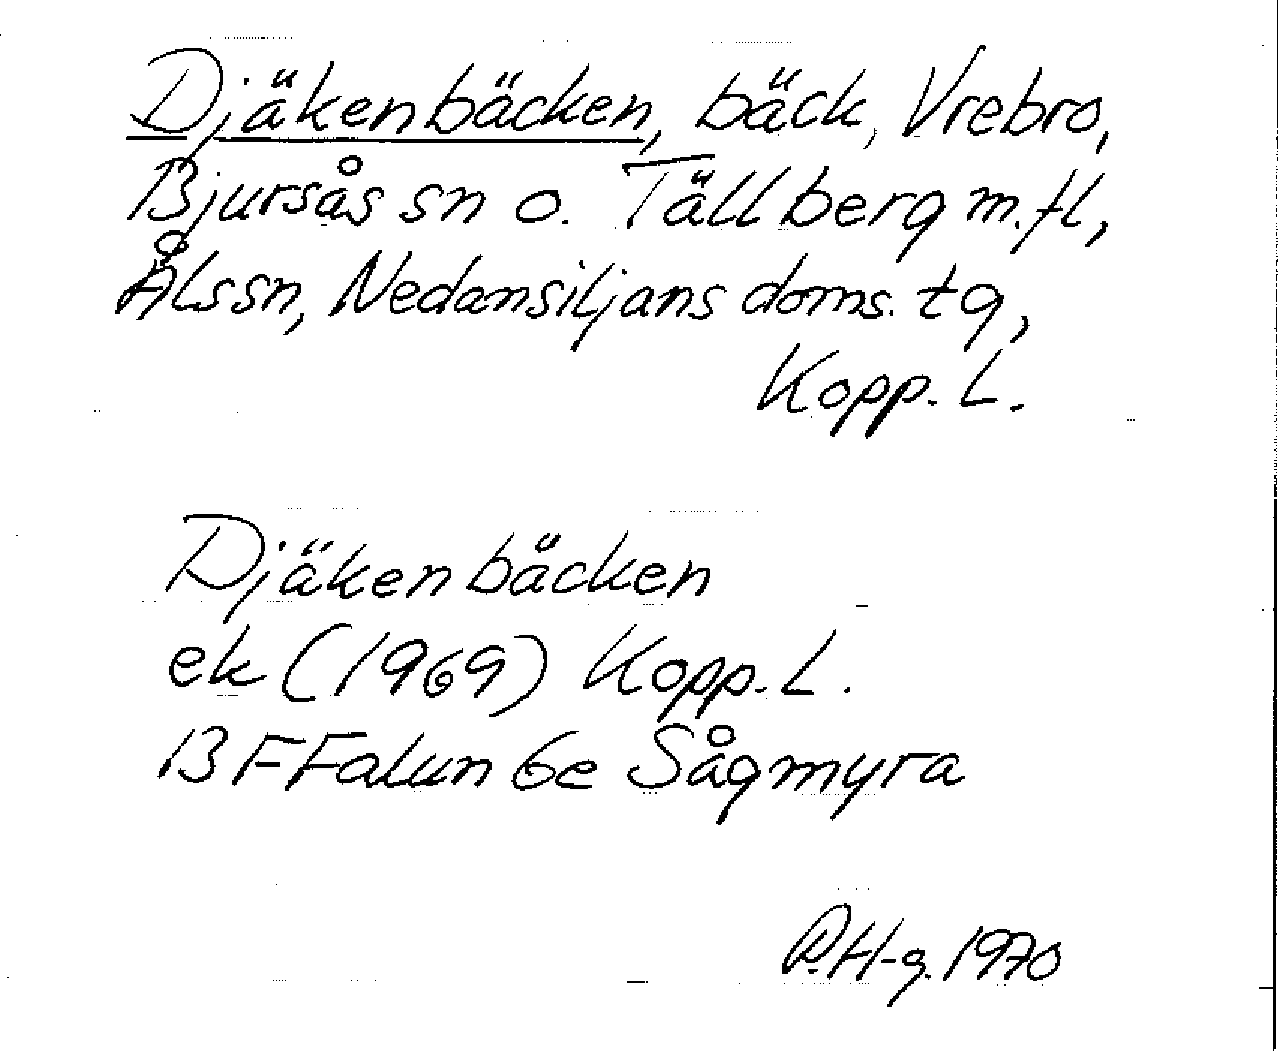 Djäkenbäcken, bäck, Vrebro,
Bjursås sn o. Tällberg m.fl,
Åls sn, Nedansiljans doms. tg,
Kopp. L.
Djäkenbäcken
ek (1969) Kopp. L.
13 F Falun 6e Sågmyra
R.H-g. 1970